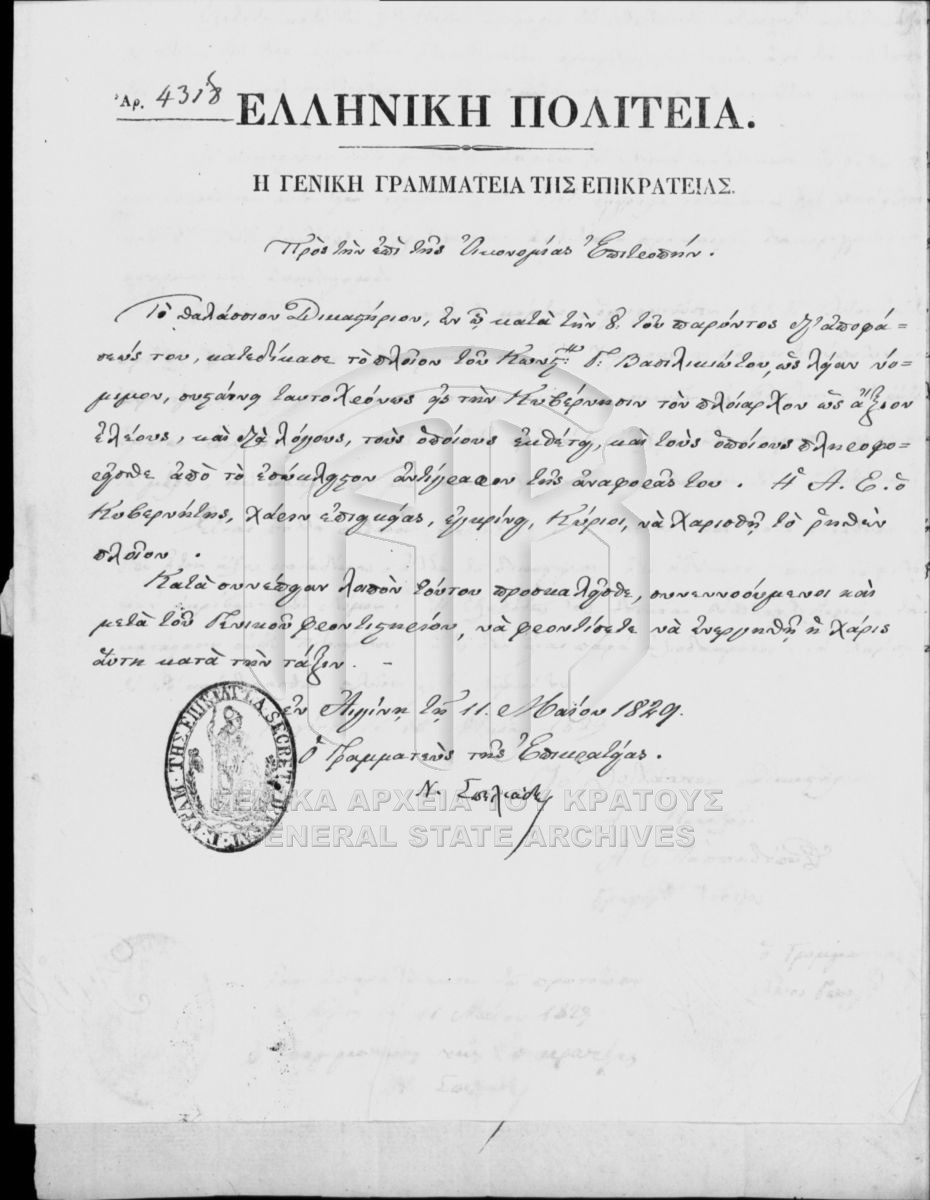 Ἀρ. 4318
ΕΛΛΗΝΙΚΗ ΠΟΛΙΤΕΙΑ.
Η ΓΕΝΙΚΗ ΓΡΑΜΜΑΤΕΙΑ ΤΗΣ ΕΠΙΚΡΑΤΕΙΑΣ.
Πρὸς τὴν ἐπὶ τῆς Οἰκονομίας Ἐπιτροπήν.
Τὸ θαλάσσιον Δικαστήριον, ἐν ᾧ κατὰ τὴν 8. τοῦ παρόντος δι' ἀποφά-
σεώς του, κατεδίκασε τὸ πλοῖον τοῦ Κωνστ: Γ: Βασιλικιώτου, ὡς λείαν νό-
μιμον, συσταίνει ταυτοχρόνως εἰς τὴν Κυβέρνησιν τὸν πλοίαρχον ὡς ἄξιον
ἐλέους, καὶ διὰ λόγους, τοὺς ὁποίους ἐκθέτει, καὶ τοὺς ὁποίους πληροφο-
ρεῖσθε ἀπὸ τὸ ἐσώκλειστον ἀντίγραφον τῆς ἀναφορᾶς του. Ἡ Α. Ε. ὁ
Κυβερνήτης, χάριν ἐπιεικείας, ἐγκρίνει, Κύριοι, νὰ χαρισθῇ τὸ ῥηθὲν
πλοῖον.
Κατὰ συνέπειαν λοιπὸν τούτου προσκαλεῖσθε, συνεννοούμενοι καὶ
μετὰ τοῦ Γενικοῦ φροντιστηρίου, νὰ φροντίσετε νὰ ἐνεργηθῇ ἡ χάρις
αὕτη κατὰ τὴν τάξιν. -
ἐν Αἰγίνῃ τῇ 11. Μαΐου 1829.
Ὁ Γραμματεὺς τῆς Ἐπικρατείας.
Ν. Σπηλιάδης
ΓΕΝΙΚΑ ΑΡΧΕΙΑ ΤΟΥ ΚΡΑΤΟΥΣ
GENERAL STATE ARCHIVES